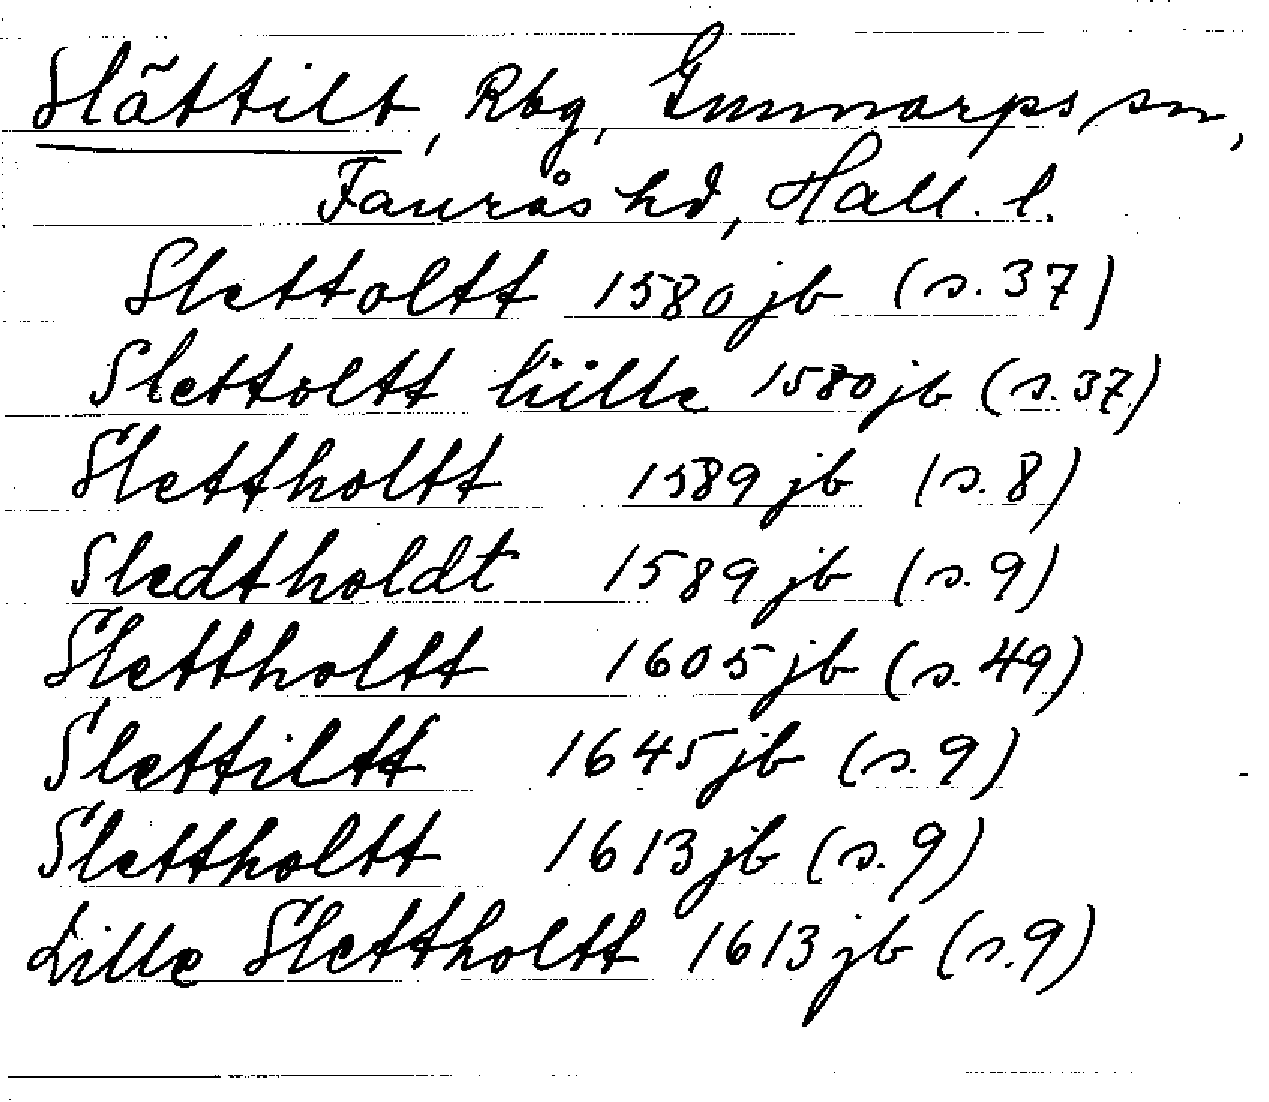 Slättilt, Rbg, Gunnarps sn,
Faurås hd, Hall. l.
Slettoltt 1580 jb (s. 37)
Slettoltt liille 1580 jb (s. 37)
Slettholtt 1589 jb (s. 8)
Sledtholdt 1589 jb (s. 9)
Slettholtt 1605 jb (s. 49)
Slettiltt 1645 jb (s. 9)
Slettholtt 1613 jb (s. 9)
Lille Slettholtt 1613 jb (s. 9)